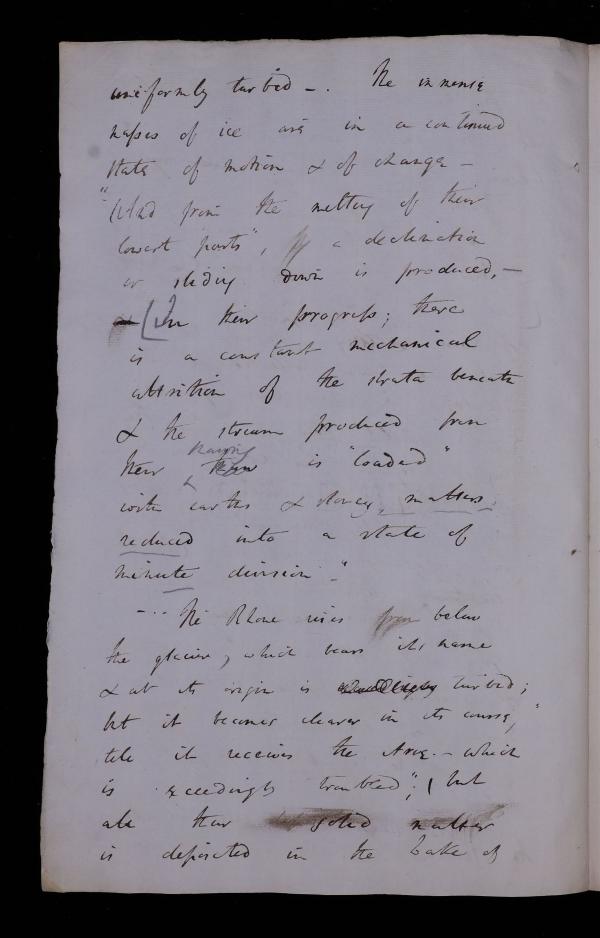 uniformly turbid –. The immense
masses of ice are in a continued
state of motion & of change –
"(And from the melting of their
lowest parts", a declination
or sliding down is produced, –
(In their progress; there
is a constant mechanical
attrition of the strata beneath
& the stream produced from
their thaw is "loaded"
with earths & stoney, matters,
reduced into a state of
minute division –"
– .. The Rhone rises from below
the glacier, which bears its name
& at its origin is turbid;
but it becomes clearer in its course,"
till it receives the Arve. – which
is exceedingly troubled"; ( but
all their solid matter
is deposited in the Lake of